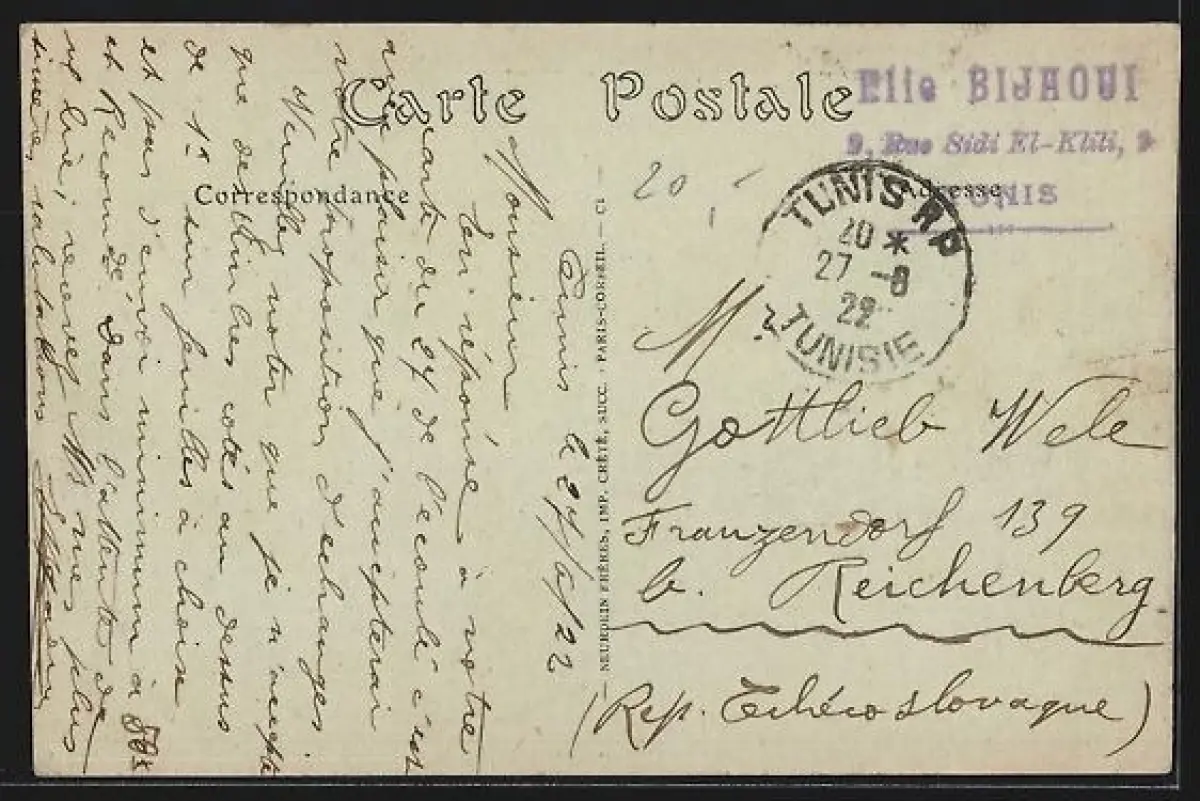 Carte Postale
Correspondance
Adresse
Elie BIJAOUI
9, Rue Sidi El-Klili, 9
TUNIS
20
TUNIS RP
20 *
27 -8
22
TUNISIE
NEURDEIN FRÈRES, IMP. CRÉTÉ, SUCC. · PARIS-CORBEIL. — C1
Tunis le 27/8/22
Monsieur
En réponse à votre
carte du 27 de l'écoulé c'est
avec plaisir que j'accepterai
votre proposition d'echanges
Veuillez noter que je n'accepte
que de timbres cotés au dessus
de 1f sur feuilles à choise
et pas d'envoi minimum à 50f
et Recomdé Dans l'attente de
vs lire, recevez Mr mes plus
sincères salutations
Mr
Gottlieb Wele
Franzendorf 139
b. Reichenberg
(Rep. Tchécoslovaque)